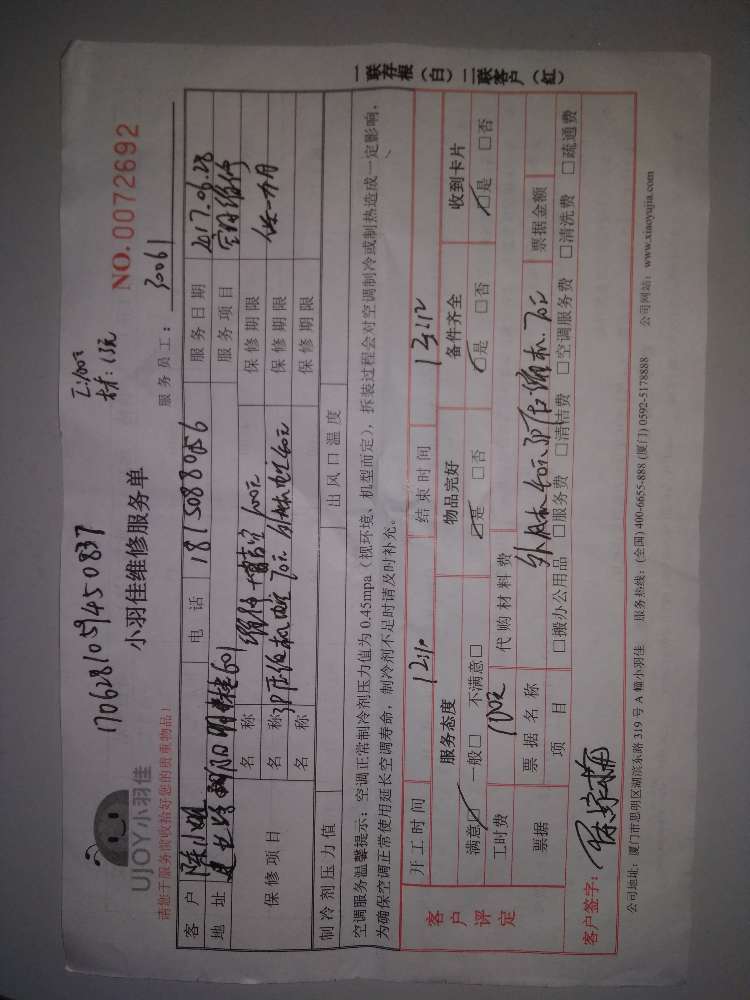 1706281059450837
工:100元
UJOY小羽佳
小羽佳维修服务单
NO.0072692
请您于服务前收拾好您的贵重物品!
服务员工: 30061
客户 电话 18150880856 服务日期 2017.06.28
地址 601 服务项目 空调维修
保修项目
名称 100元 保修期限 保一个月
名称 3P压缩机电容70元 外风机电容40元 保修期限
名称 保修期限
制冷剂压力值 出风口温度
空调服务温馨提示:空调正常制冷剂压力值为0.45mpa(视环境、机型而定),拆装过程会对空调制冷或制热造成一定影响,
为确保空调正常使用延长空调寿命,制冷剂不足时请及时补充。
客户评定
开工时间 12:10 结束时间 13:12
服务态度 物品完好 备件齐全 收到卡片
满意☑ 一般□ 不满意□ ☑是 □否 ☑是 □否 ☑是 □否
工时费 100元 代购材料费
票据 票据名称 票据金额
项目 □搬办公用品 □服务费 □清洁费 □空调服务费 □清洗费 □疏通费
客户签字:
公司地址:厦门市思明区湖滨东路319号A幢小羽佳 服务热线:(全国)400-6655-888 (厦门) 0592-5178888 公司网站:www.xiaoyujia.com
一联存根(白)二联客户(红)